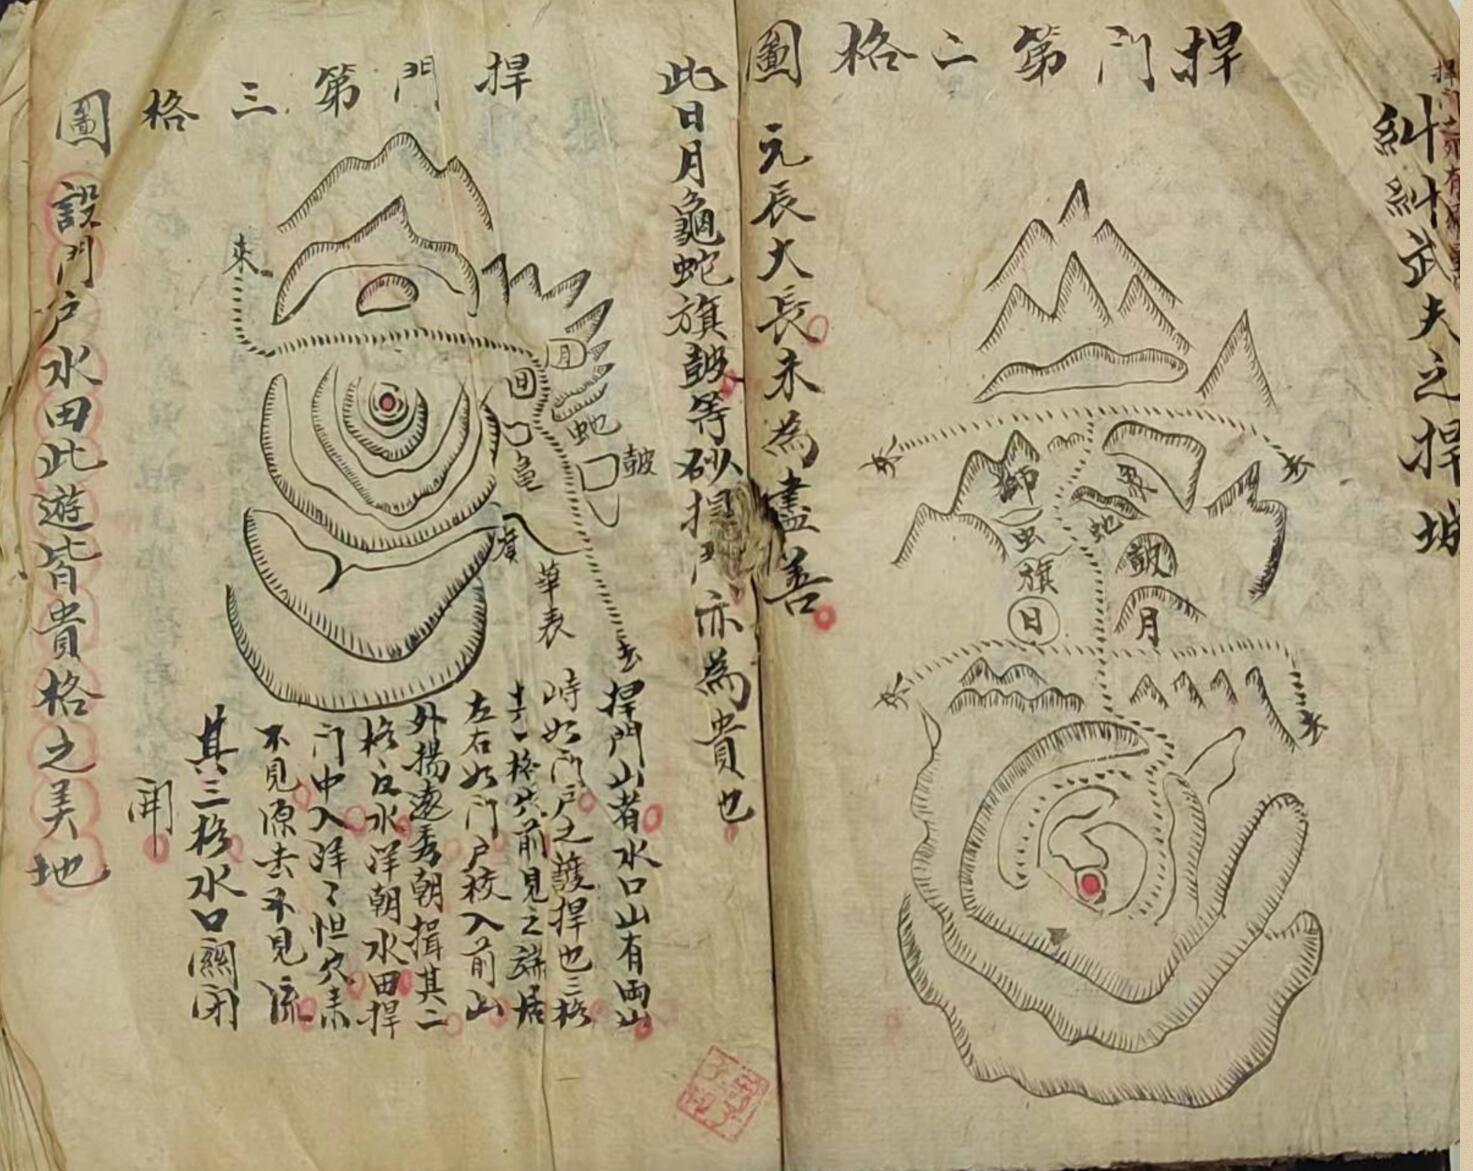 糾糾武夫之捍城
捍門第二格圖
獅
虫
旗
日
蛇
皷
月
元辰大長未為盡善
此日月龜蛇旗皷等砂捍門亦為貴也
捍門第三格圖
來
月
日
蛇
龜
皷
華表
去
捍門山者水口山有両山
峙如門户之護捍也三格
格穴前見之端居
左右如門户校入前山
外揚遠秀朝揖其二
格后水洋朝水田捍
门中入洋〻怛穴
不見源去不見流
其三格水口關闭
開
設門户水田此遊皆貴格之美地